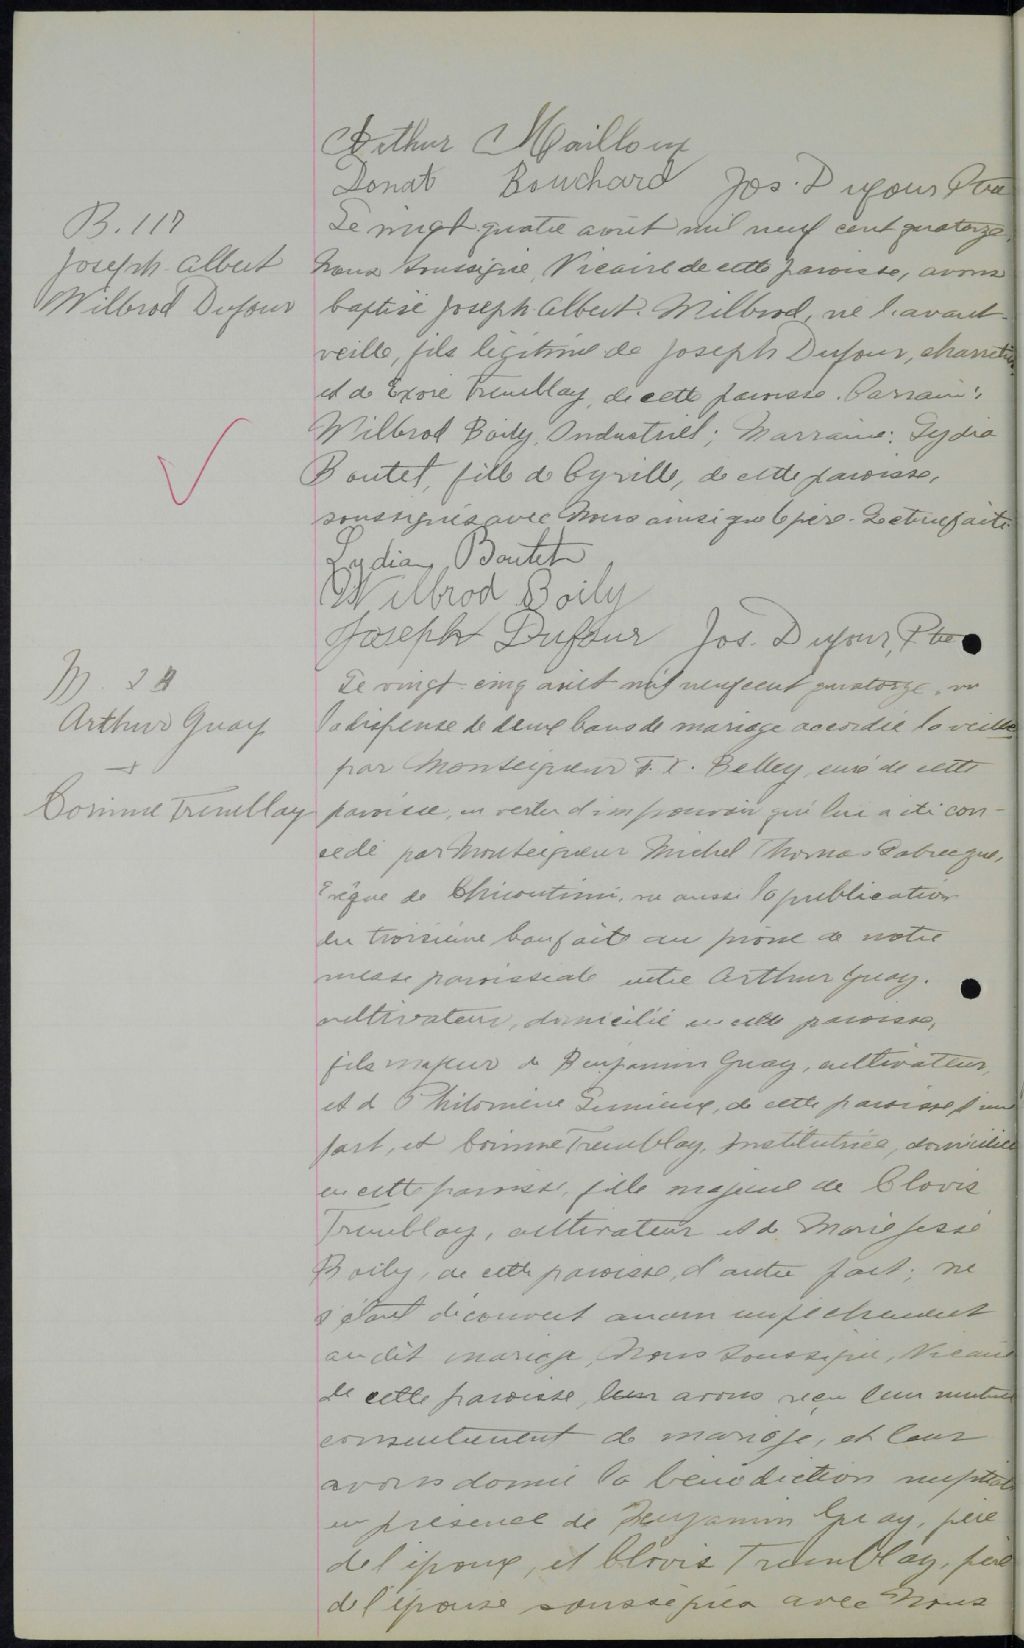 Arthur Mailloux
Donat Bouchard Jos. Dufour Ptre
B. 117
Joseph-Albert
Wilbrod Dufour
Le vingt-quatre août mil neuf cent quatorze,
Nous soussigné, Vicaire de cette paroisse, avons
baptisé Joseph-Albert-Wilbrod, né l'avant-
veille, fils légitime de Joseph Dufour, charretier,
et de Exoré Tremblay, de cette paroisse. Parrain:
Wilbrod Boily, Industriel; Marraine: Lydia
Boutet, fille de Cyrille, de cette paroisse,
soussignés avec Nous ainsi que le père. Lecture faite
Lydia Boutet
Wilbrod Boily
Joseph Dufour Jos. Dufour, Ptre
M. 24
Arthur Guay
+
Corinne Tremblay
Le vingt-cinq août mil neuf cent quatorze, vu
la dispense de deux bans de mariage accordée la veille
par Monseigneur F. X. Belley, curé de cette
paroisse, en vertu d'un pouvoir qui lui a été con-
cédé par Monseigneur Michel Thomas Labrecque,
Evêque de Chicoutimi, vu aussi la publication
du troisième ban faite au prône de notre
messe paroissiale entre Arthur Guay,
cultivateur, domicilié en cette paroisse,
fils majeur de Benjamin Guay, cultivateur,
et de Philomène Lemieux, de cette paroisse d'une
part, et Corinne Tremblay, Institutrice, domiciliée
en cette paroisse, fille majeure de Clovis
Tremblay, cultivateur et de Marie Jessé
Boily, de cette paroisse, d'autre part; ne
s'étant découvert aucun empêchement
au dit mariage, Nous soussigné, Vicaire
de cette paroisse, leur avons reçu leur mutuel
consentement de mariage, et leur
avons donné la bénédiction nuptiale
en présence de Benjamin Guay, père
de l'époux, et Clovis Tremblay, père
de l'épouse soussignés avec Nous